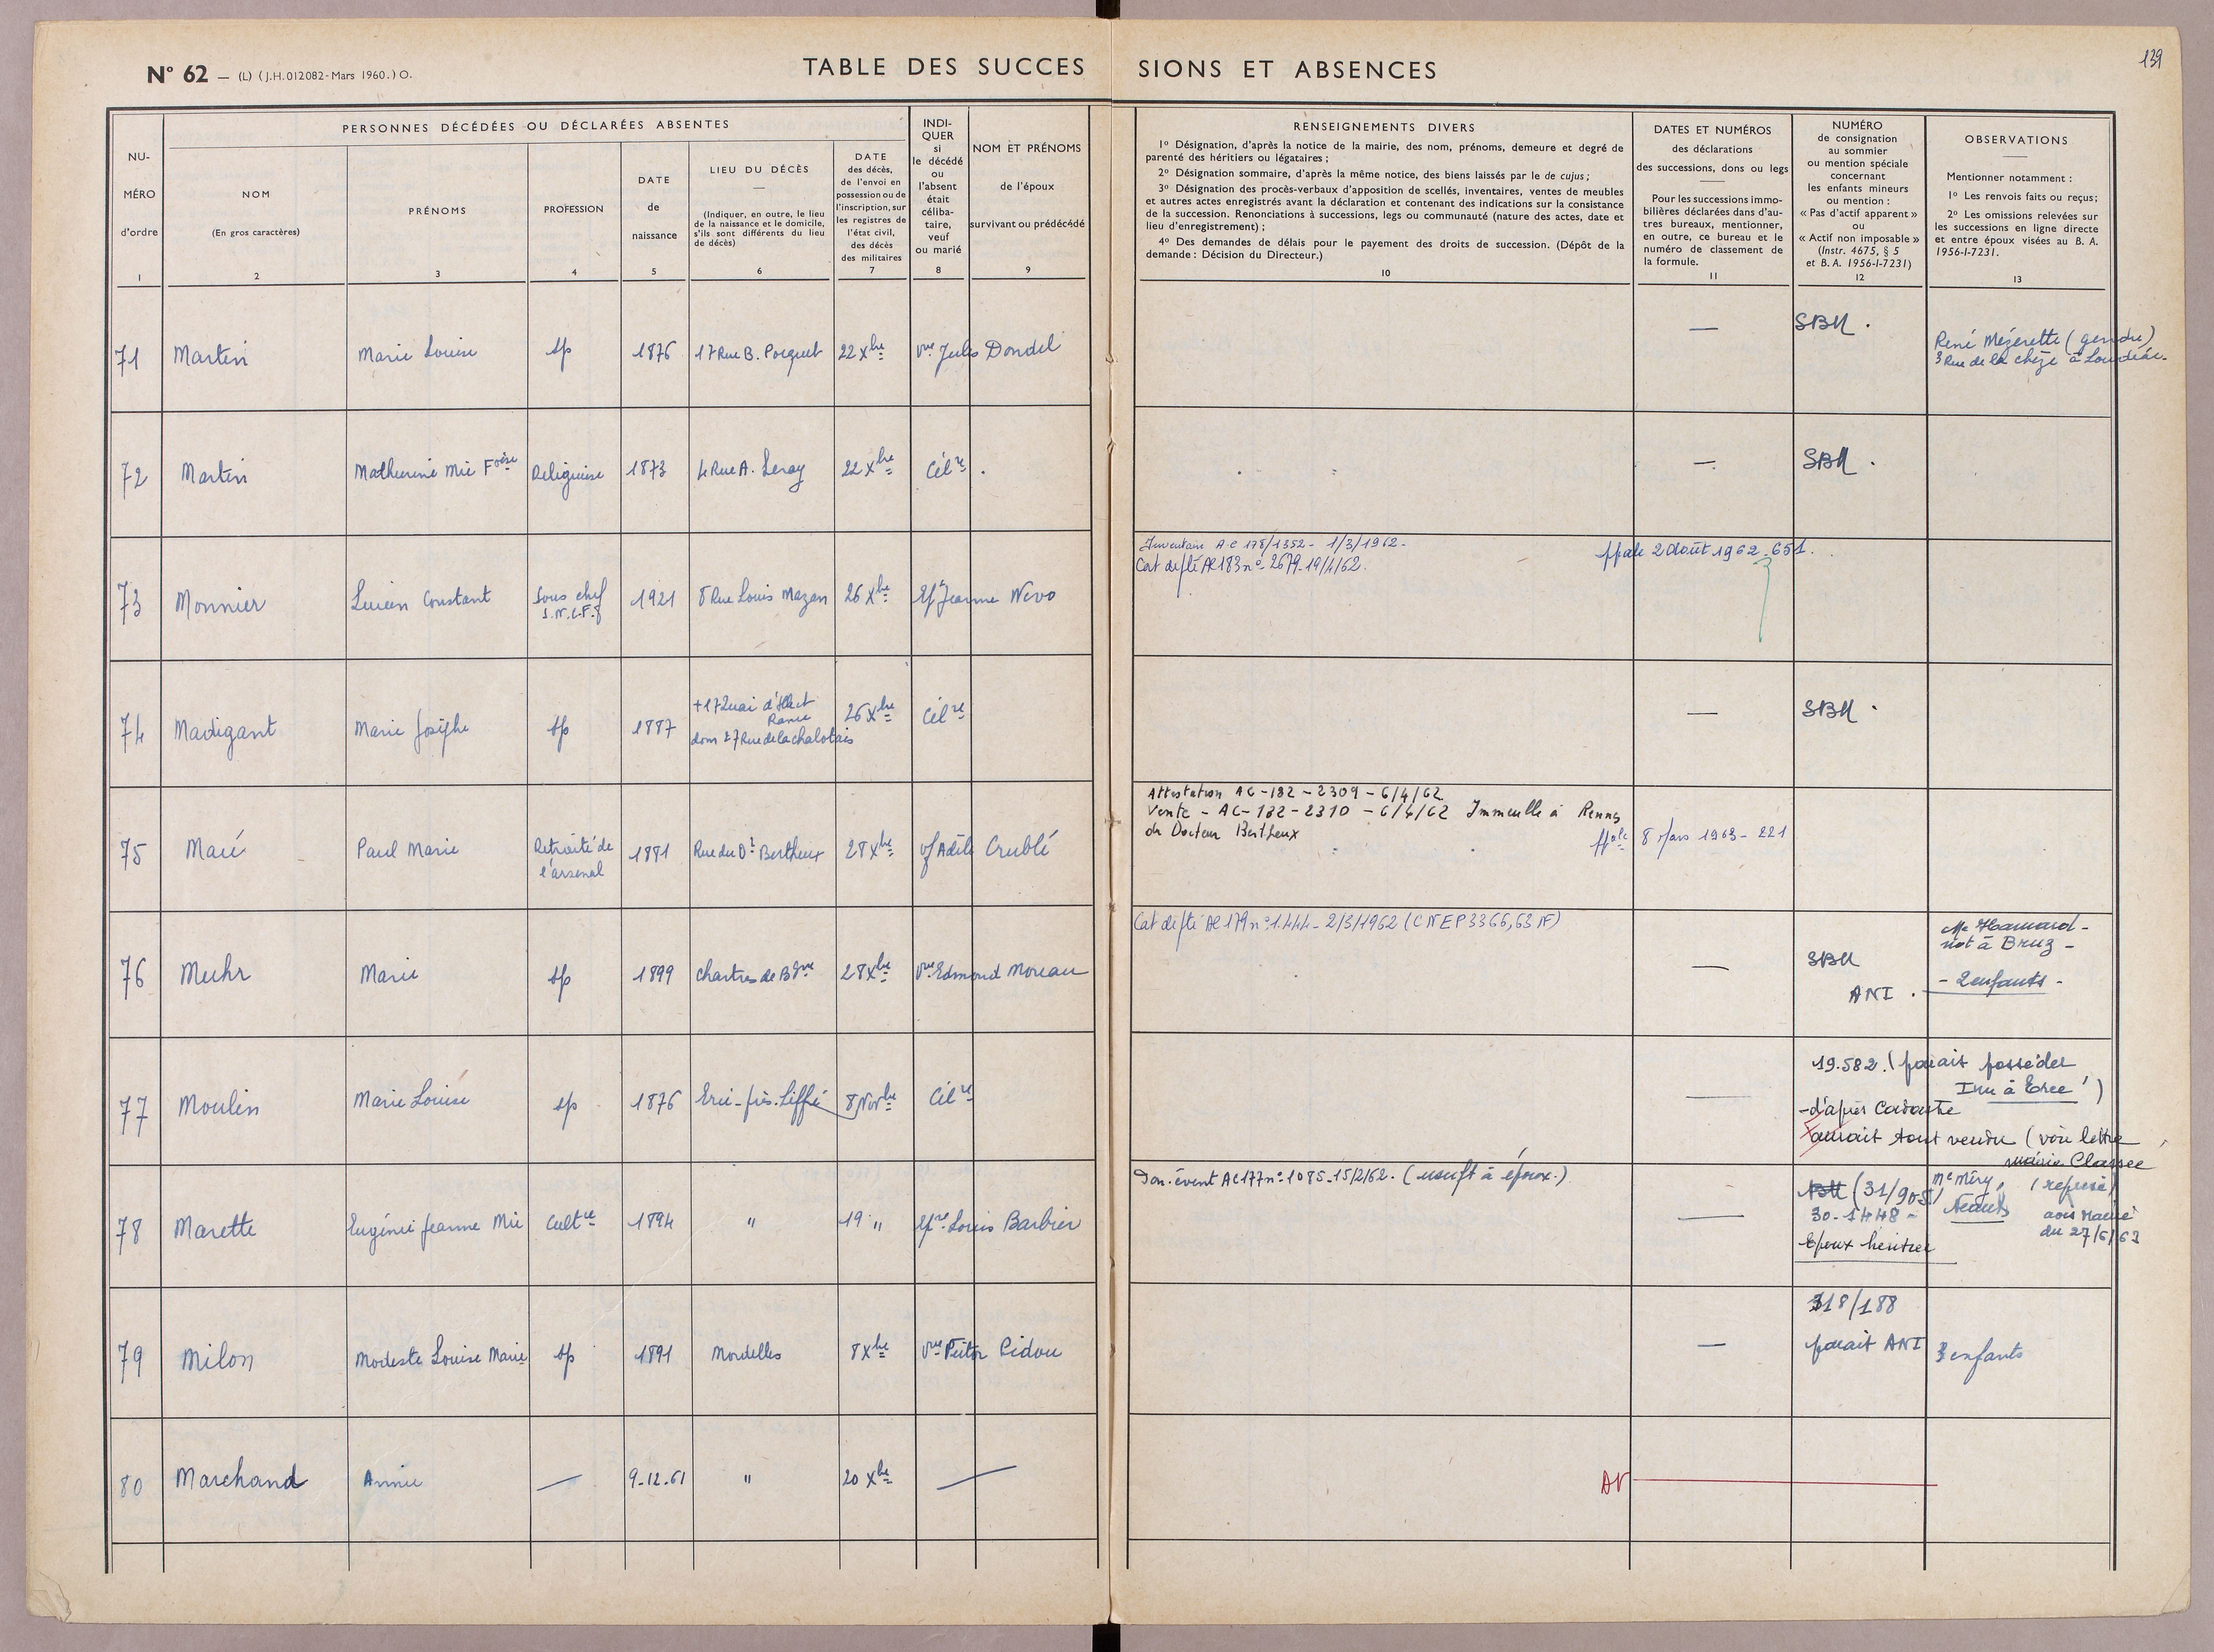 N° 62 — (L) (J.H. 012082 - Mars 1960.) O.
TABLE DES SUCCES SIONS ET ABSENCES
139
NU-
MÉRO
d'ordre
1
PERSONNES DÉCÉDÉES OU DÉCLARÉES ABSENTES
NOM
(En gros caractères)
2
PRÉNOMS
3
PROFESSION
4
DATE
de
naissance
5
LIEU DU DÉCÈS
—
(Indiquer, en outre, le lieu
de la naissance et le domicile,
s'ils sont différents du lieu
de décès)
6
DATE
des décès,
de l'envoi en
possession ou de
l'inscription, sur
les registres de
l'état civil,
des décès
des militaires
7
INDI-
QUER
si
le décédé
ou
l'absent
était
céliba-
taire,
veuf
ou marié
8
NOM ET PRÉNOMS
de l'époux
survivant ou prédécédé
9
RENSEIGNEMENTS DIVERS
1° Désignation, d'après la notice de la mairie, des nom, prénoms, demeure et degré de
parenté des héritiers ou légataires ;
2° Désignation sommaire, d'après la même notice, des biens laissés par le de cujus ;
3° Désignation des procès-verbaux d'apposition de scellés, inventaires, ventes de meubles
et autres actes enregistrés avant la déclaration et contenant des indications sur la consistance
de la succession. Renonciations à successions, legs ou communauté (nature des actes, date et
lieu d'enregistrement) ;
4° Des demandes de délais pour le payement des droits de succession. (Dépôt de la
demande : Décision du Directeur.)
10
DATES ET NUMÉROS
des déclarations
des successions, dons ou legs
Pour les successions immo-
bilières déclarées dans d'au-
tres bureaux, mentionner,
en outre, ce bureau et le
numéro de classement de
la formule.
11
NUMÉRO
de consignation
au sommier
ou mention spéciale
concernant
les enfants mineurs
ou mention :
« Pas d'actif apparent »
ou
« Actif non imposable »
(Instr. 4675, § 5
et B. A. 1956-I-7231)
12
OBSERVATIONS
Mentionner notamment :
1° Les renvois faits ou reçus;
2° Les omissions relevées sur
les successions en ligne directe
et entre époux visées au B. A.
1956-I-7231.
13
71 Martin Marie Louise sp 1876 17 Rue B. Pocquet 22 Xbre vve Jules Dondel — SBM .
René Mézerette (gendre)
3 Rue de la chèze à Loudéac.
72 Martin Mathurine Mie Fçoise Religieuse 1873 4 Rue A. Leray 22 Xbre Célre . — SBM .
Inventaire AC 178/1352 - 1/3/1962 -
Cat de pté AC 183 n° 2679 - 19/4/62.
ppale 2 Août 1962 - 651.
73 Monnier Lucien Constant Sous chef
S.N.C.F.
1921 8 Rue Louis Mazan 26 Xbre Ep Jeanne Nevo
+ 17 Quai d'Ille et
Rance
dom 27 Rue de la chalotais
74 Madigant Marie Josèphe sp 1887 26 Xbre Célre — SBM .
Attestation AC - 182 - 2309 - 6/4/62
Vente - AC - 182 - 2310 - 6/4/62 Immeuble à Rennes
du Docteur Bertheux
ppale 8 Mars 1963 - 221
75 Maré Paul Marie Retraité de
l'arsenal
1881 Rue du Dr Bertheux 28 Xbre vf Adèle Crublé
Cat de pté AC 179 n° 1.444 - 2/3/1962 (CNEP 3366,63 NF)
76 Muhr Marie sp 1899 Chartres de Bgne 28 Xbre vve Edmond Moreau — SBM
ANI .
Me Hamard -
not à Bruz -
- 2 enfants -
77 Moulin Marie Louise sp 1876 Ercé-près-Liffré 8 Novbre Célre —
19.582. (parait posséder
Imm à Ercé)
- d'après Cadastre
aurait tout vendu (voir lettre
mairie Classée
Don. évent AC 177 n° 1085 - 15/2/62. (usuft à époux.)
78 Marette Eugénie Jeanne Mie Cultce 1894 " 19 " Epse Louis Barbier —
SBM (31/905)
30 - 1448 -
Epoux héritier
Me Méry,
Néant
(refusé)
avis Mairie
du 27/6/63
79 Milon Modeste Louise Marie sp 1891 Mordelles 8 Xbre vve Pidou —
318/188
parait ANI
3 enfants
80 Marchand Annie — 9-12-61 " 20 Xbre — AN